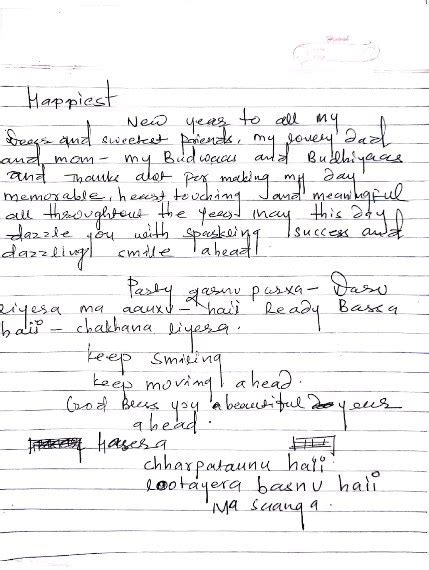 Happiest
New year to all my
Dears and sweetest friends, my lovely dad
and mom - my Budwaas and Budhiyaas
and Thanks alot for making my day
memorable, heart touching and meaningful
all throughtout the year may this day
dazzle you with sparkling success and
dazzling smile ahead
Party garnu parxa - Daru
liyera ma aauxu - haii Ready Bassa
haii - chakhana liyera.
keep smiling
keep moving ahead.
God Bless you a beautiful years
ahead.
Hasera
chharpataunu haii
lootayera basnu haii
Ma saanga.